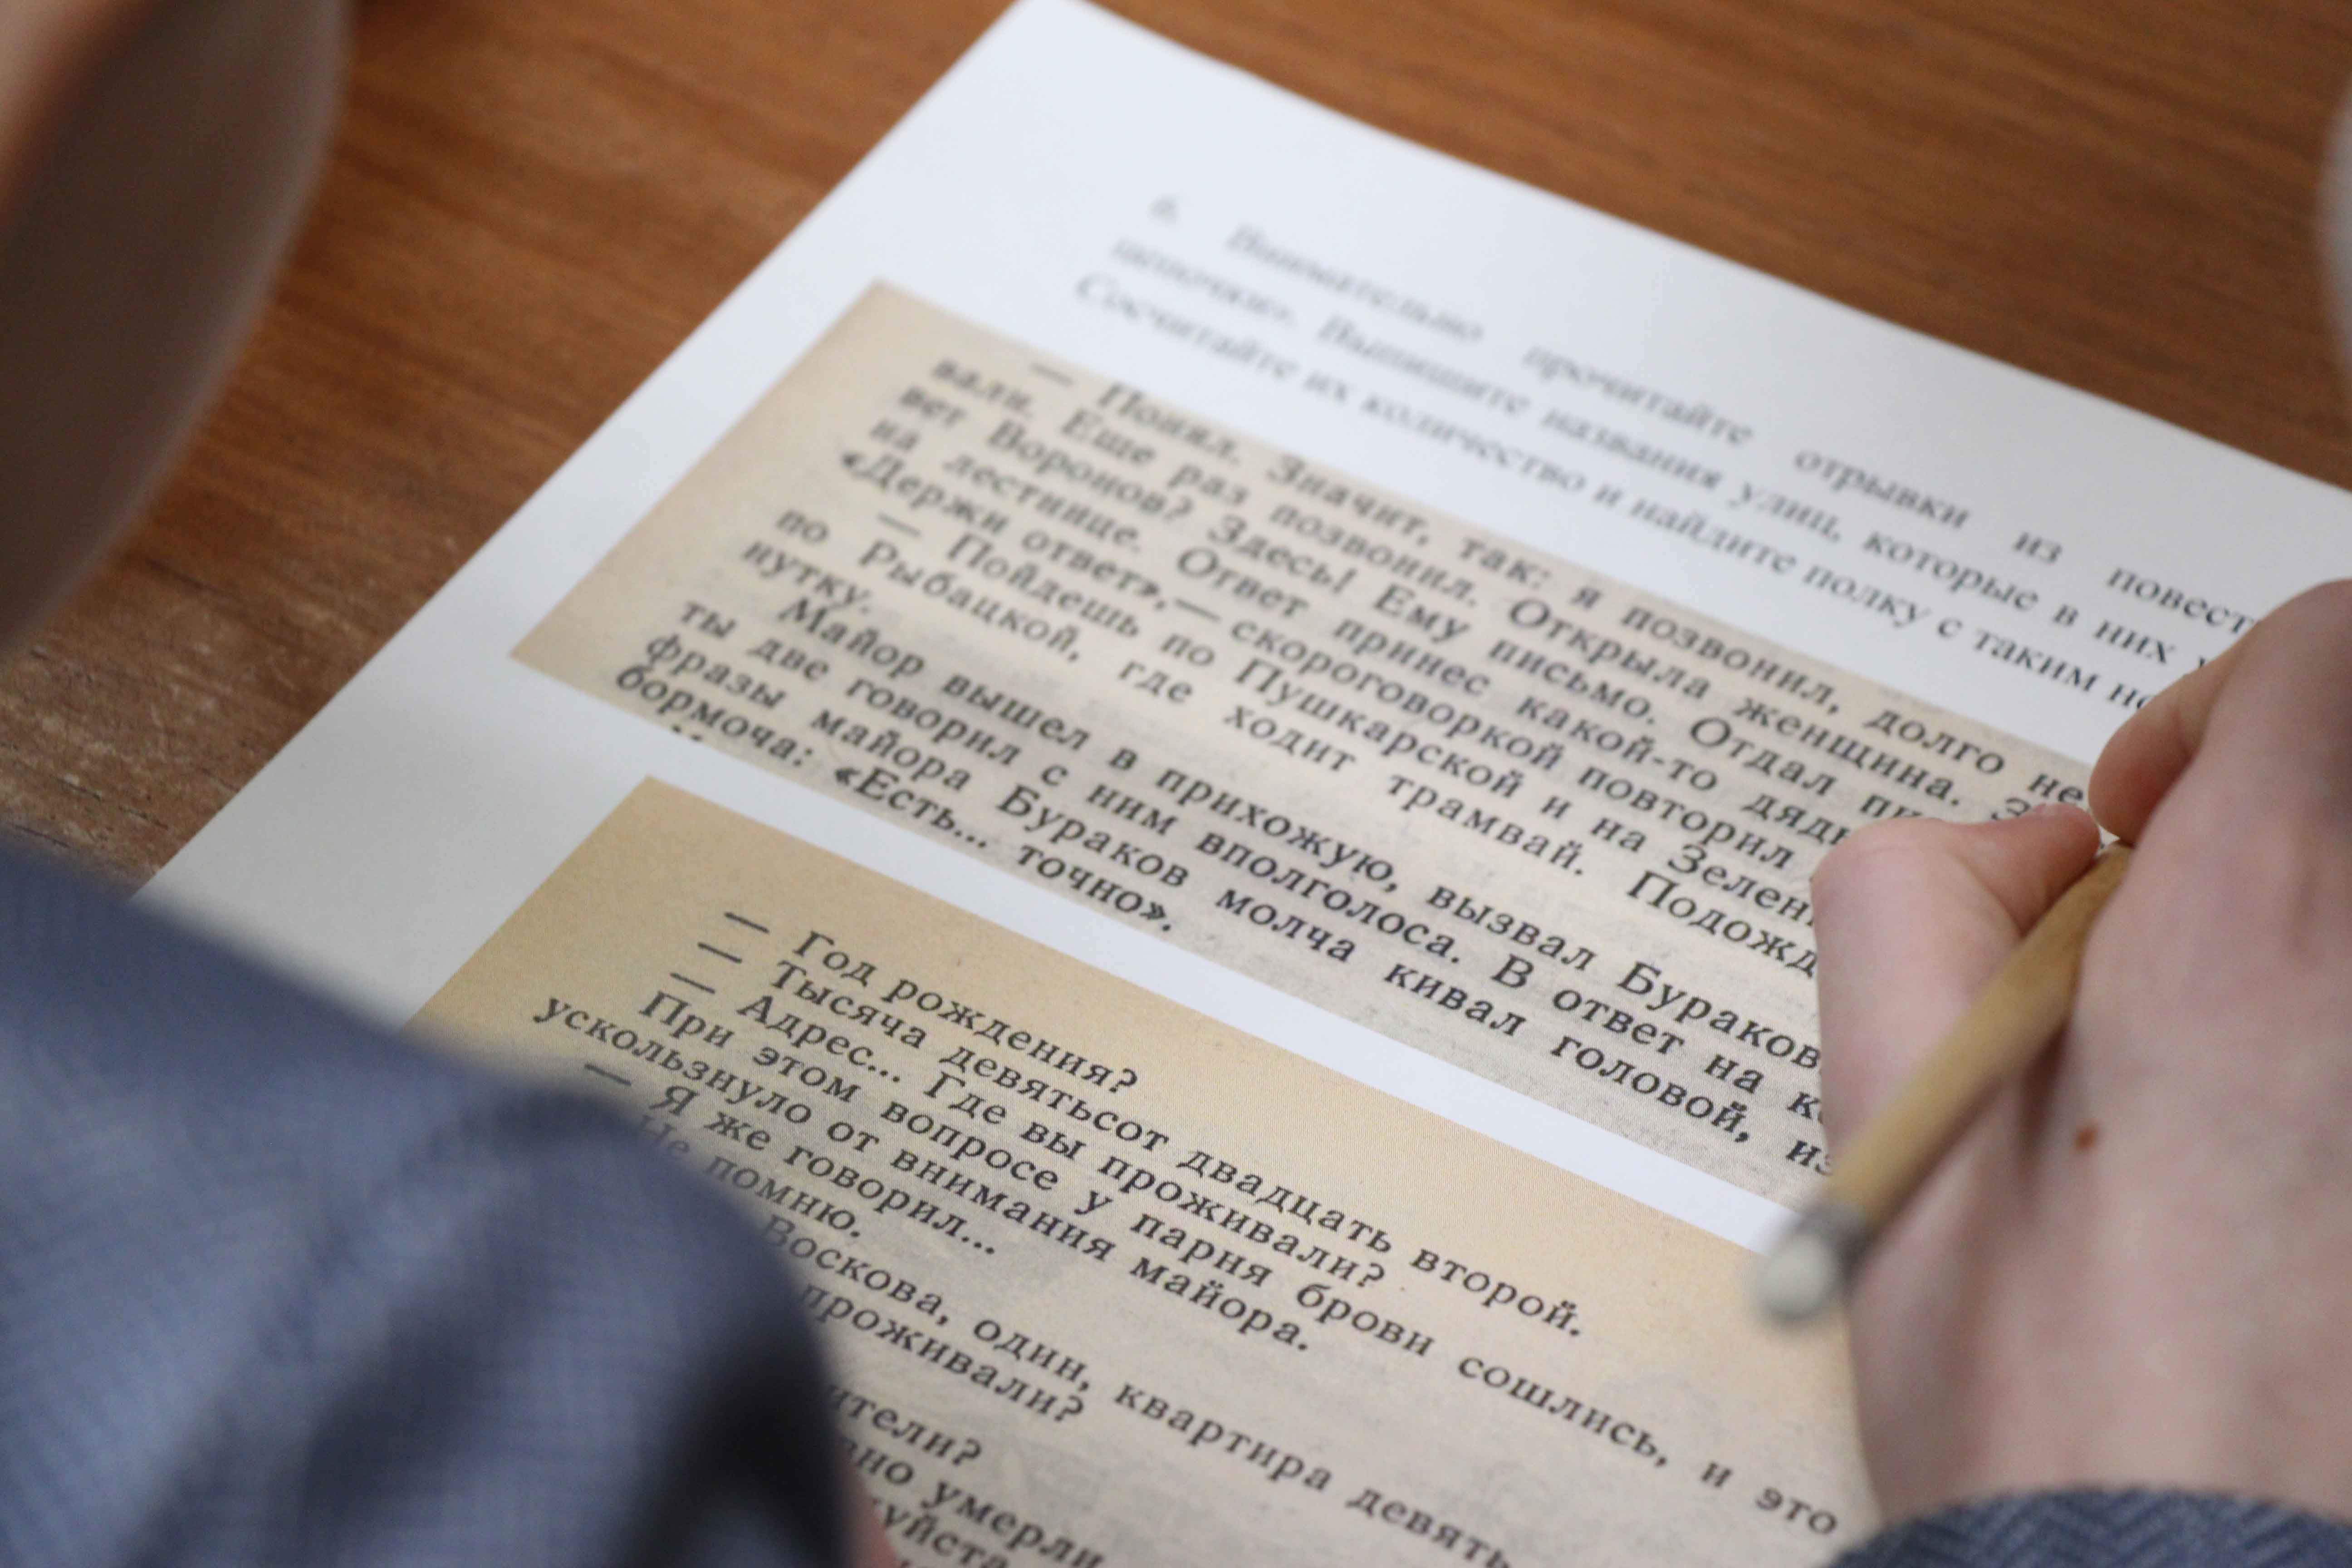 6. Внимательно прочитайте отрывки из повест
шопочки». Выпишите названия улиц, которые в них
Сосчитайте их количество и найдите полку с таким но
— Понял. Значит, так: я позвонил, долго не
вали. Еще раз позвонил. Открыла женщина. З
вет Воронов? Здесь! Ему письмо. Отдал пи
на лестнице. Ответ принес какой-то дядь
«Держи ответ»,— скороговоркой повторил
— Пойдешь по Пушкарской и на Зелен
по Рыбацкой, где ходит трамвай. Подожд
нутку.
Майор вышел в прихожую, вызвал Бураков
ты две говорил с ним вполголоса. В ответ на к
фразы майора Бураков молча кивал головой, из
бормоча: «Есть... точно».
— Год рождения?
— Тысяча девятьсот двадцать второй.
— Адрес... Где вы проживали?
При этом вопросе у парня брови сошлись, и это
ускользнуло от внимания майора.
— Я же говорил...
Не помню.
Воскова, один, квартира девять
проживали?
ители?
вно умерли
уйста